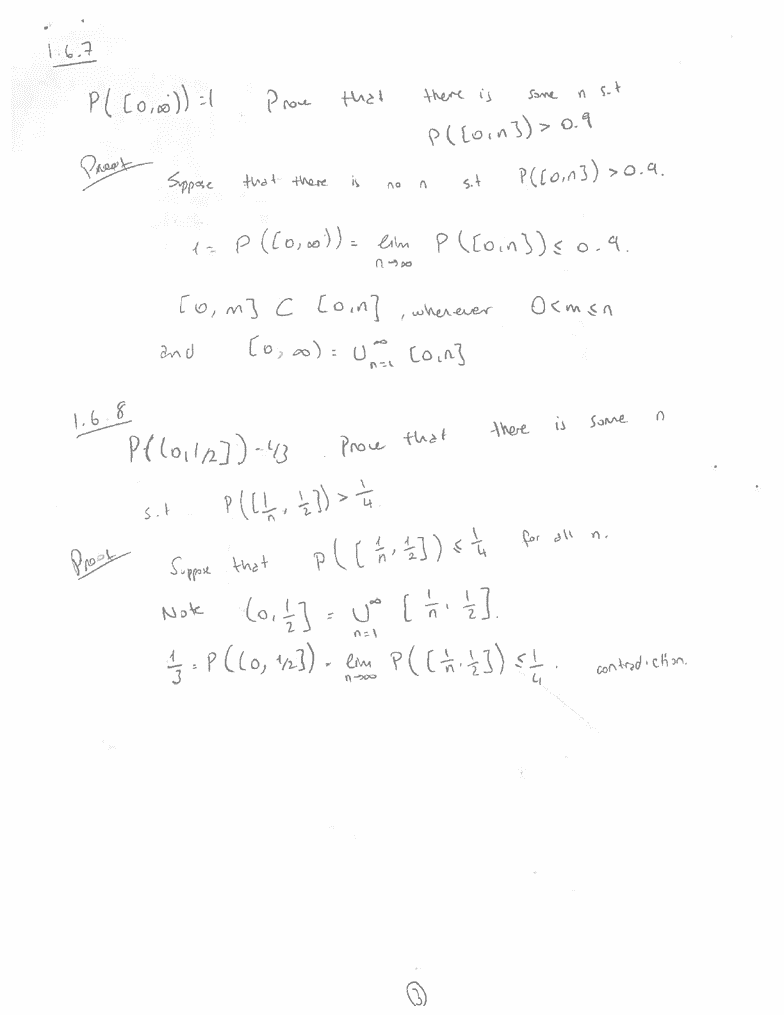 1.6.7
P([0,∞)) = 1 Prove that there is some n s.t
P([0,n]) > 0.9
Proof
Suppose that there is no n s.t P([0,n]) > 0.9.
1 = P([0,∞)) = lim_{n→∞} P([0,n]) ≤ 0.9.
[0,m] ⊂ [0,n], whenever 0<m≤n
and [0,∞) = ∪_{n=1}^∞ [0,n]
1.6.8
P((0,1/2]) = 1/3. Prove that there is some n
s.t P([1/n, 1/2]) > 1/4
Proof
Suppose that P([1/n, 1/2]) ≤ 1/4 for all n.
Note (0, 1/2] = ∪_{n=1}^∞ [1/n, 1/2].
1/3 = P((0, 1/2]) = lim_{n→∞} P([1/n, 1/2]) ≤ 1/4. contradiction.
3